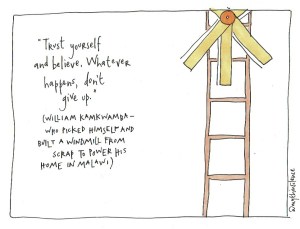 "Trust yourself
and believe. Whatever
happens, don't
give up."
(William Kamkwamba –
who picked himself and
built a windmill from
scrap to power his
home in Malawi)